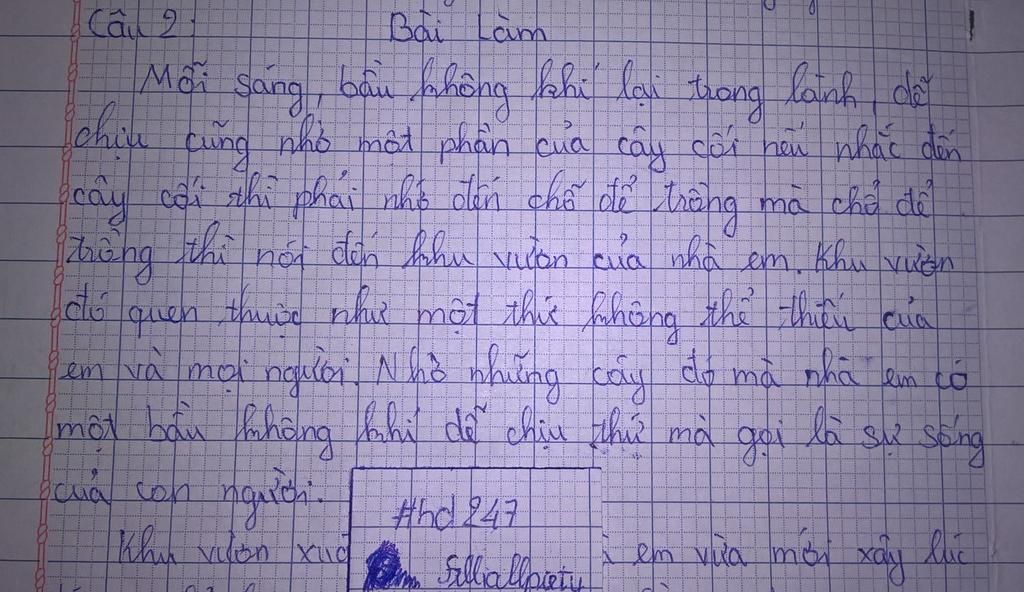 Câu 2:
Bài Làm
Mỗi sáng, bầu không khí lại trong lành, dễ
chịu cũng nhờ một phần của cây cối nếu nhắc đến
cây cối thì phải nhớ đến chỗ để trồng mà chỗ để
trồng thì nói đến khu vườn của nhà em. Khu vườn
đó quen thuộc như một thứ không thể thiếu của
em và mọi người. Nhờ những cây đó mà nhà em có
một bầu không khí dễ chịu thứ mà gọi là sự sống
của con người.
#hd247
Khu vườn em vừa mới xây lúc